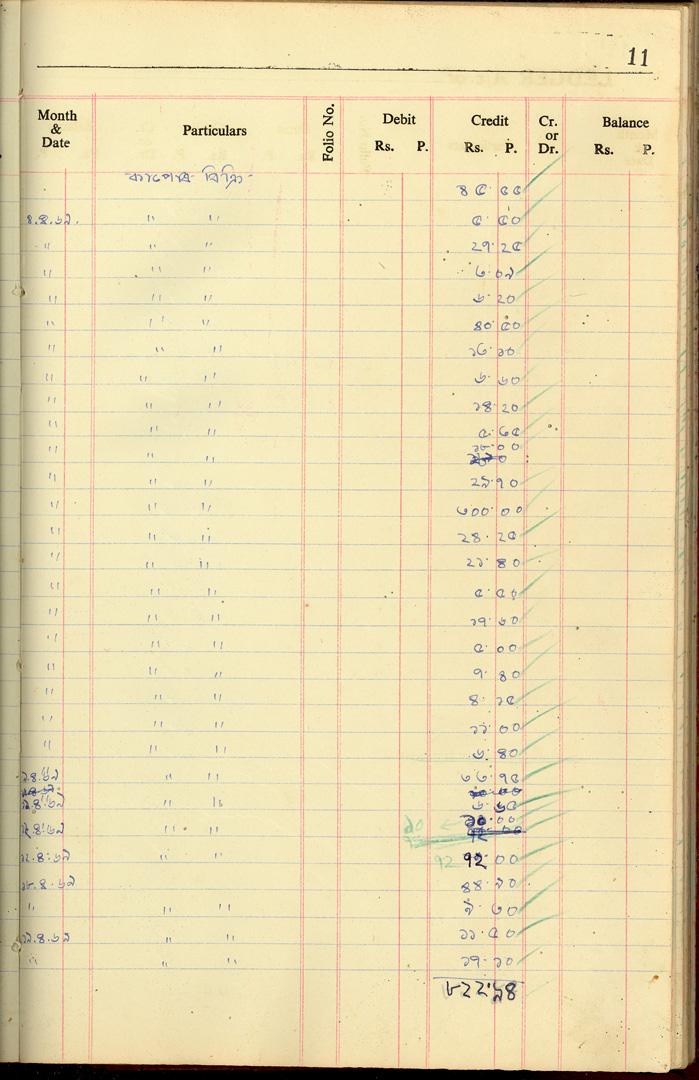 11
Month & Date Particulars Folio No. Debit Rs. P. Credit Rs. P. Cr. or Dr. Balance Rs. P.
কাপড় বিক্রি - ৪৫.৫৫
৪.৪.৬৯. " " ৫.৫০
" " " ২৭.২৫
" " " ৬.০৯
" " " ৬.২০
" " " ৪০.৫০
" " " ১৬.১০
" " " ৬.৬০
" " " ১৪.২০
" " " ৫.৬৫
" " " ১৮.০০
" " " ২৯.৭০
" " " ৩০০.০০
" " " ২৪.২৫
" " " ২১.৪০
" " " ৫.৫০
" " " ১৭.৬০
" " " ৫.০০
" " " ৭.৪০
" " " ৪.১৫
" " " ১১.০০
" " " ৬.৪০
৪.৬৯ " " ৩৩.৭৫
৪.৬৯ " " ৬.৬৫
১০ ১০.০০
৪.৬৯ " "
৭২
৪.৬৯ " " ৭২ ৭২.০০
১৮.৪.৬৯ ৪৪.১০
" " " ৯.৩০
১৯.৪.৬৯ " " ১১.৫০
" " " ১৭.১০
৮২২.৯৪